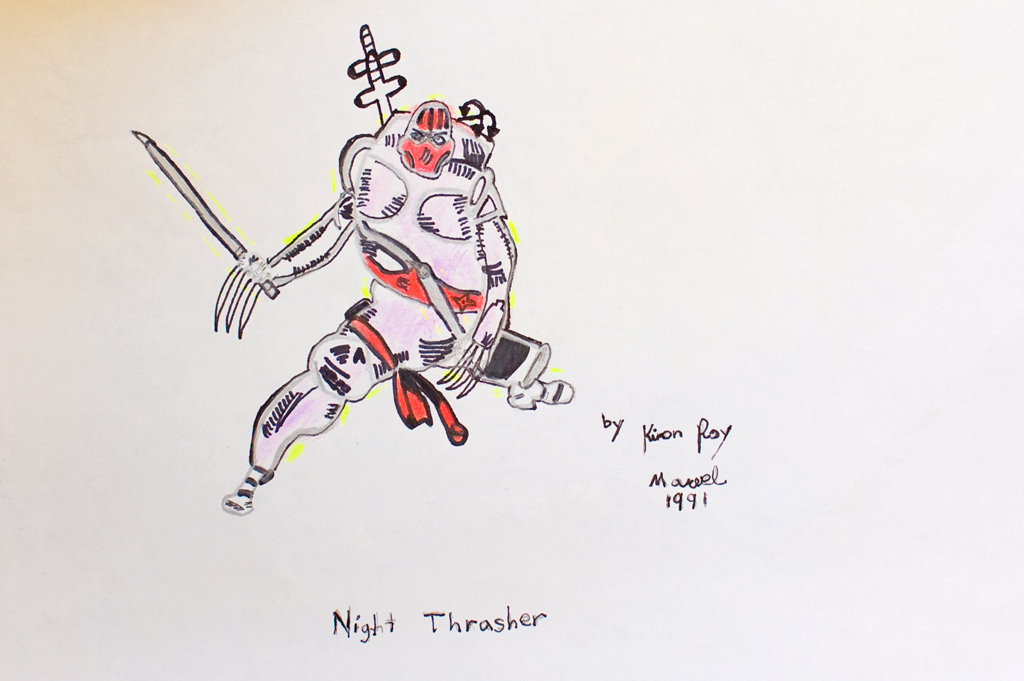 by Kiron Roy
Marvel
1991
Night Thrasher